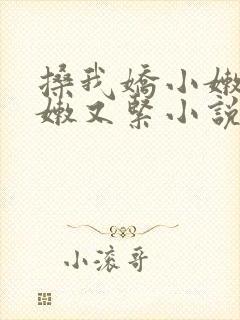 搡我嬌小嫩
嫩又緊小說
小滚哥